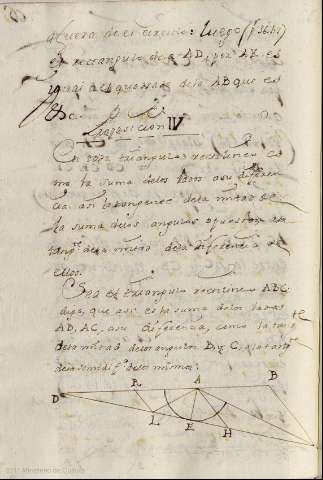 afuera de el circulo: luego (p. 36. l. 3)
el rectangulo de AD, por AE es
igual al quadrado de lo AB que es
&c.
Proposicion IV
En todo triangulo rectilineo es
mo la suma delos lados a su diferen
cia, asi la tangente dela mitad de
la suma delos angulos opuestos a la
tang.te dela mitad dela diferencia de
ellos.
Sea el triangulo rectilineo ABC
digo, que asi es la suma delos lados
AD, AC, a su diferencia, como la tang.te
dela mitad delos angulos B, y C, a la tang.te
dela semidif.a delos mismos.
D R A B
L E H
Ministerio de Cultura